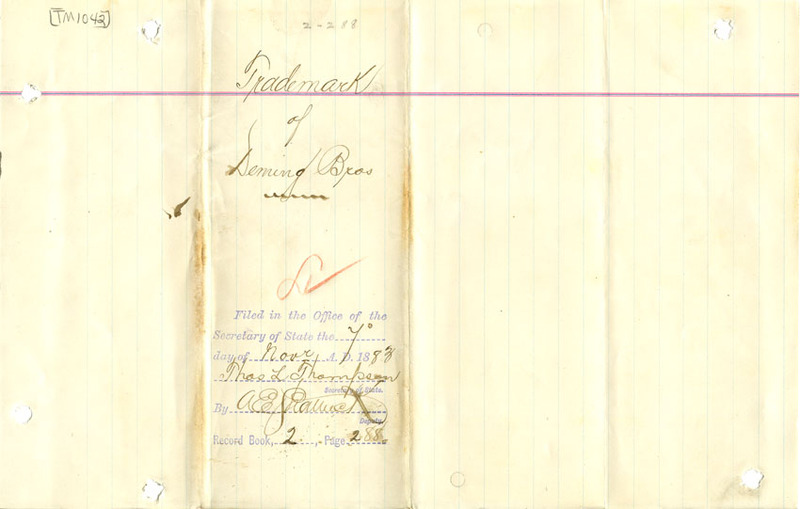 [TM1042]
2-288
Trademark
of
Deming Bros
Filed in the Office of the
Secretary of State the 7°
day of Novr, A. D. 1883
Thos L. Thompson
Secretary of State.
By A E
Deputy.
Record Book, 2, Page 288.